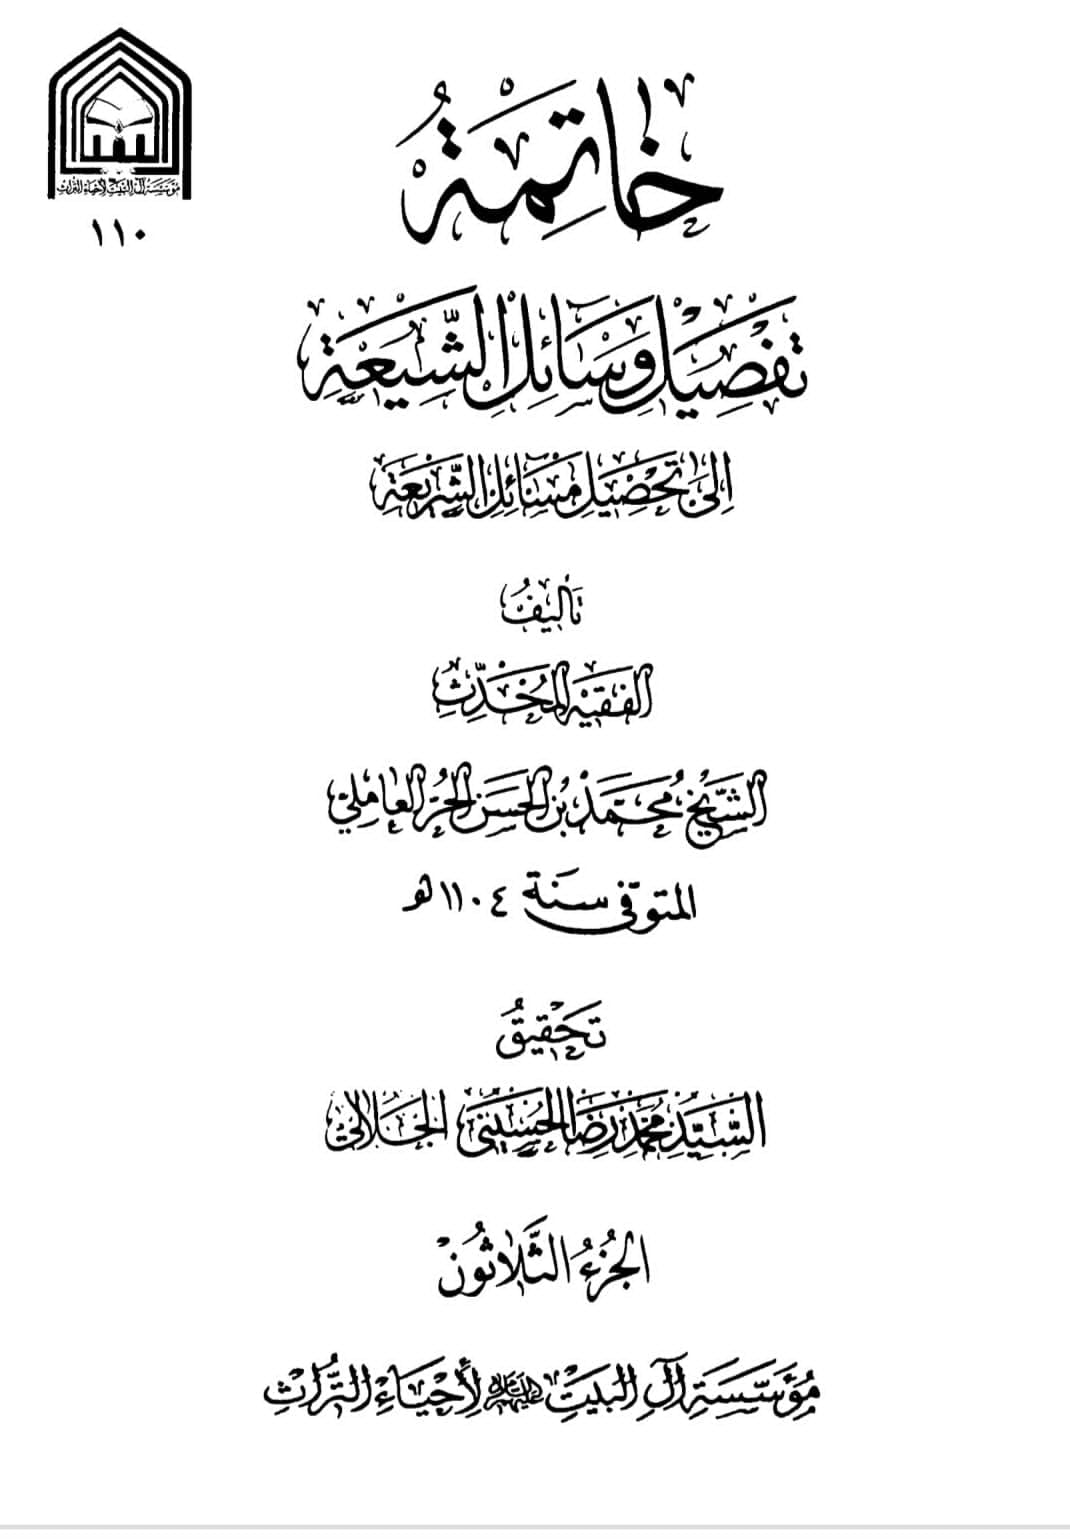 مؤسسة آل البيت لإحياء التراث
١١٠
خَاتِمَةُ
تَفصِيل وَسَائِل الشِّيعَةِ
إِلىَ تَحصِيلِ مَسَائِلِ الشَّرِيعَةِ
تَأليفُ
الفَقيه المُحَدِّثِ
الشَّيْخ مُحَمَّد بْن الحَسَن الحُرّ العَامِليّ
المتوفى سنة ١١٠٤ هـ
تَحقِيقُ
السَّيِّد مُحَمَّد رِضَا الحُسَيْنيّ الجَلَاليّ
الجُزءُ الثَّلاثُونْ
مُؤَسَّسَةِ آلِ البَيتِ عليهم السلام لِأَحيَاءِ التُّراثِ